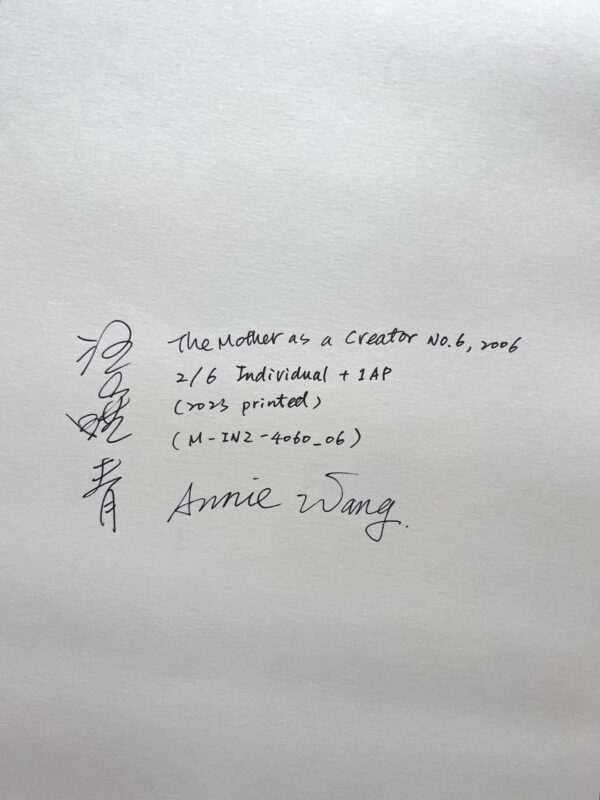 汪曉青
The Mother as a Creator No.6, 2006
2/6 Individual + 1AP
(2023 printed)
(M-IN2-4060_06)
Annie Wang.